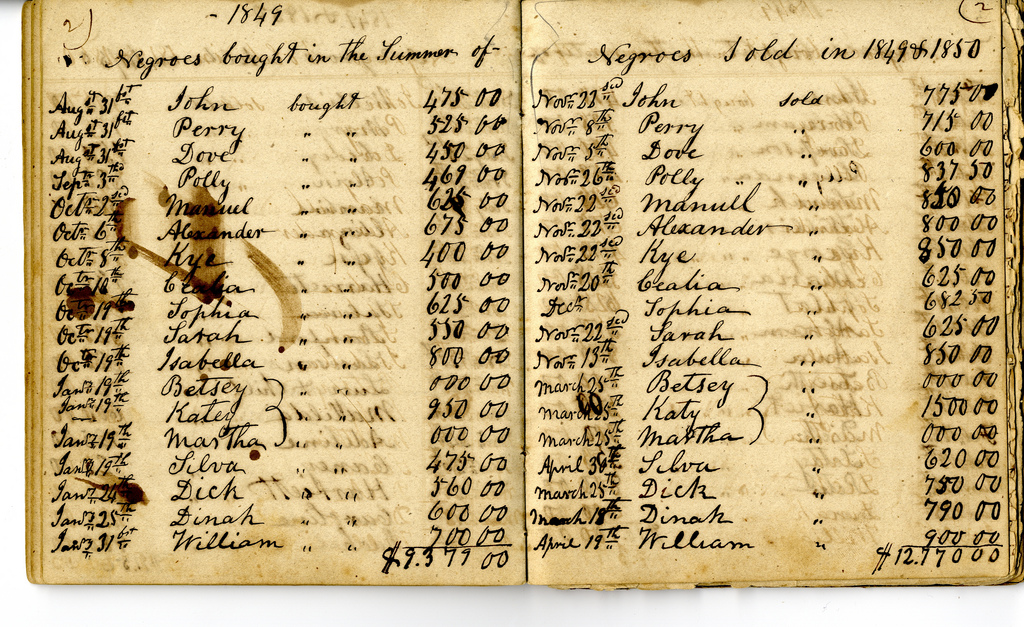 2)
- 1849
Negroes bought in the Summer of -
Augst 31st John bought 475 00
Augst 31st Perry " " 525 00
Augst 31st Dove " " 450 00
Septr 3rd Polly " " 469 00
Octr 2nd Manuel " " 625 00
Octr 6th Alexander " " 675 00
Octr 8th Kye " " 400 00
Octr 18th Cealia " " 500 00
Octr 19th Sophia " " 625 00
Octr 19th Sarah " " 550 00
Octr 19th Isabella " " 800 00
Jany 19th Betsey 000 00
Jany 19th Katey " " 950 00
Jany 19th Martha " " 000 00
Jany 19th Silva " " 475 00
Jany 24th Dick " " 560 00
Jany 25th Dinah " " 600 00
Jany 31st William " " 700 00
$9.379 00
(2
Negroes Sold in 1849 & 1850
Novr 22nd John sold 775 00
Novr 8th Perry " 715 00
Novr 5th Dove " 600 00
Novr 26th Polly " " 837 50
Novr 22nd Manuell 850 00
Novr 22nd Alexander " 800 00
Novr 22nd Kye " 850 00
Novr 20th Cealia " 625 00
Decr Sophia " 682 50
Novr 22nd Sarah " 625 00
Novr 13th Isabella " 850 00
March 25th Betsey " 000 00
March 25th Katy " 1500 00
March 25th Martha " 000 00
April 30th Silva " 620 00
March 25th Dick " 750 00
March 18th Dinah " 790 00
April 19th William " 900 00
$12.770 00